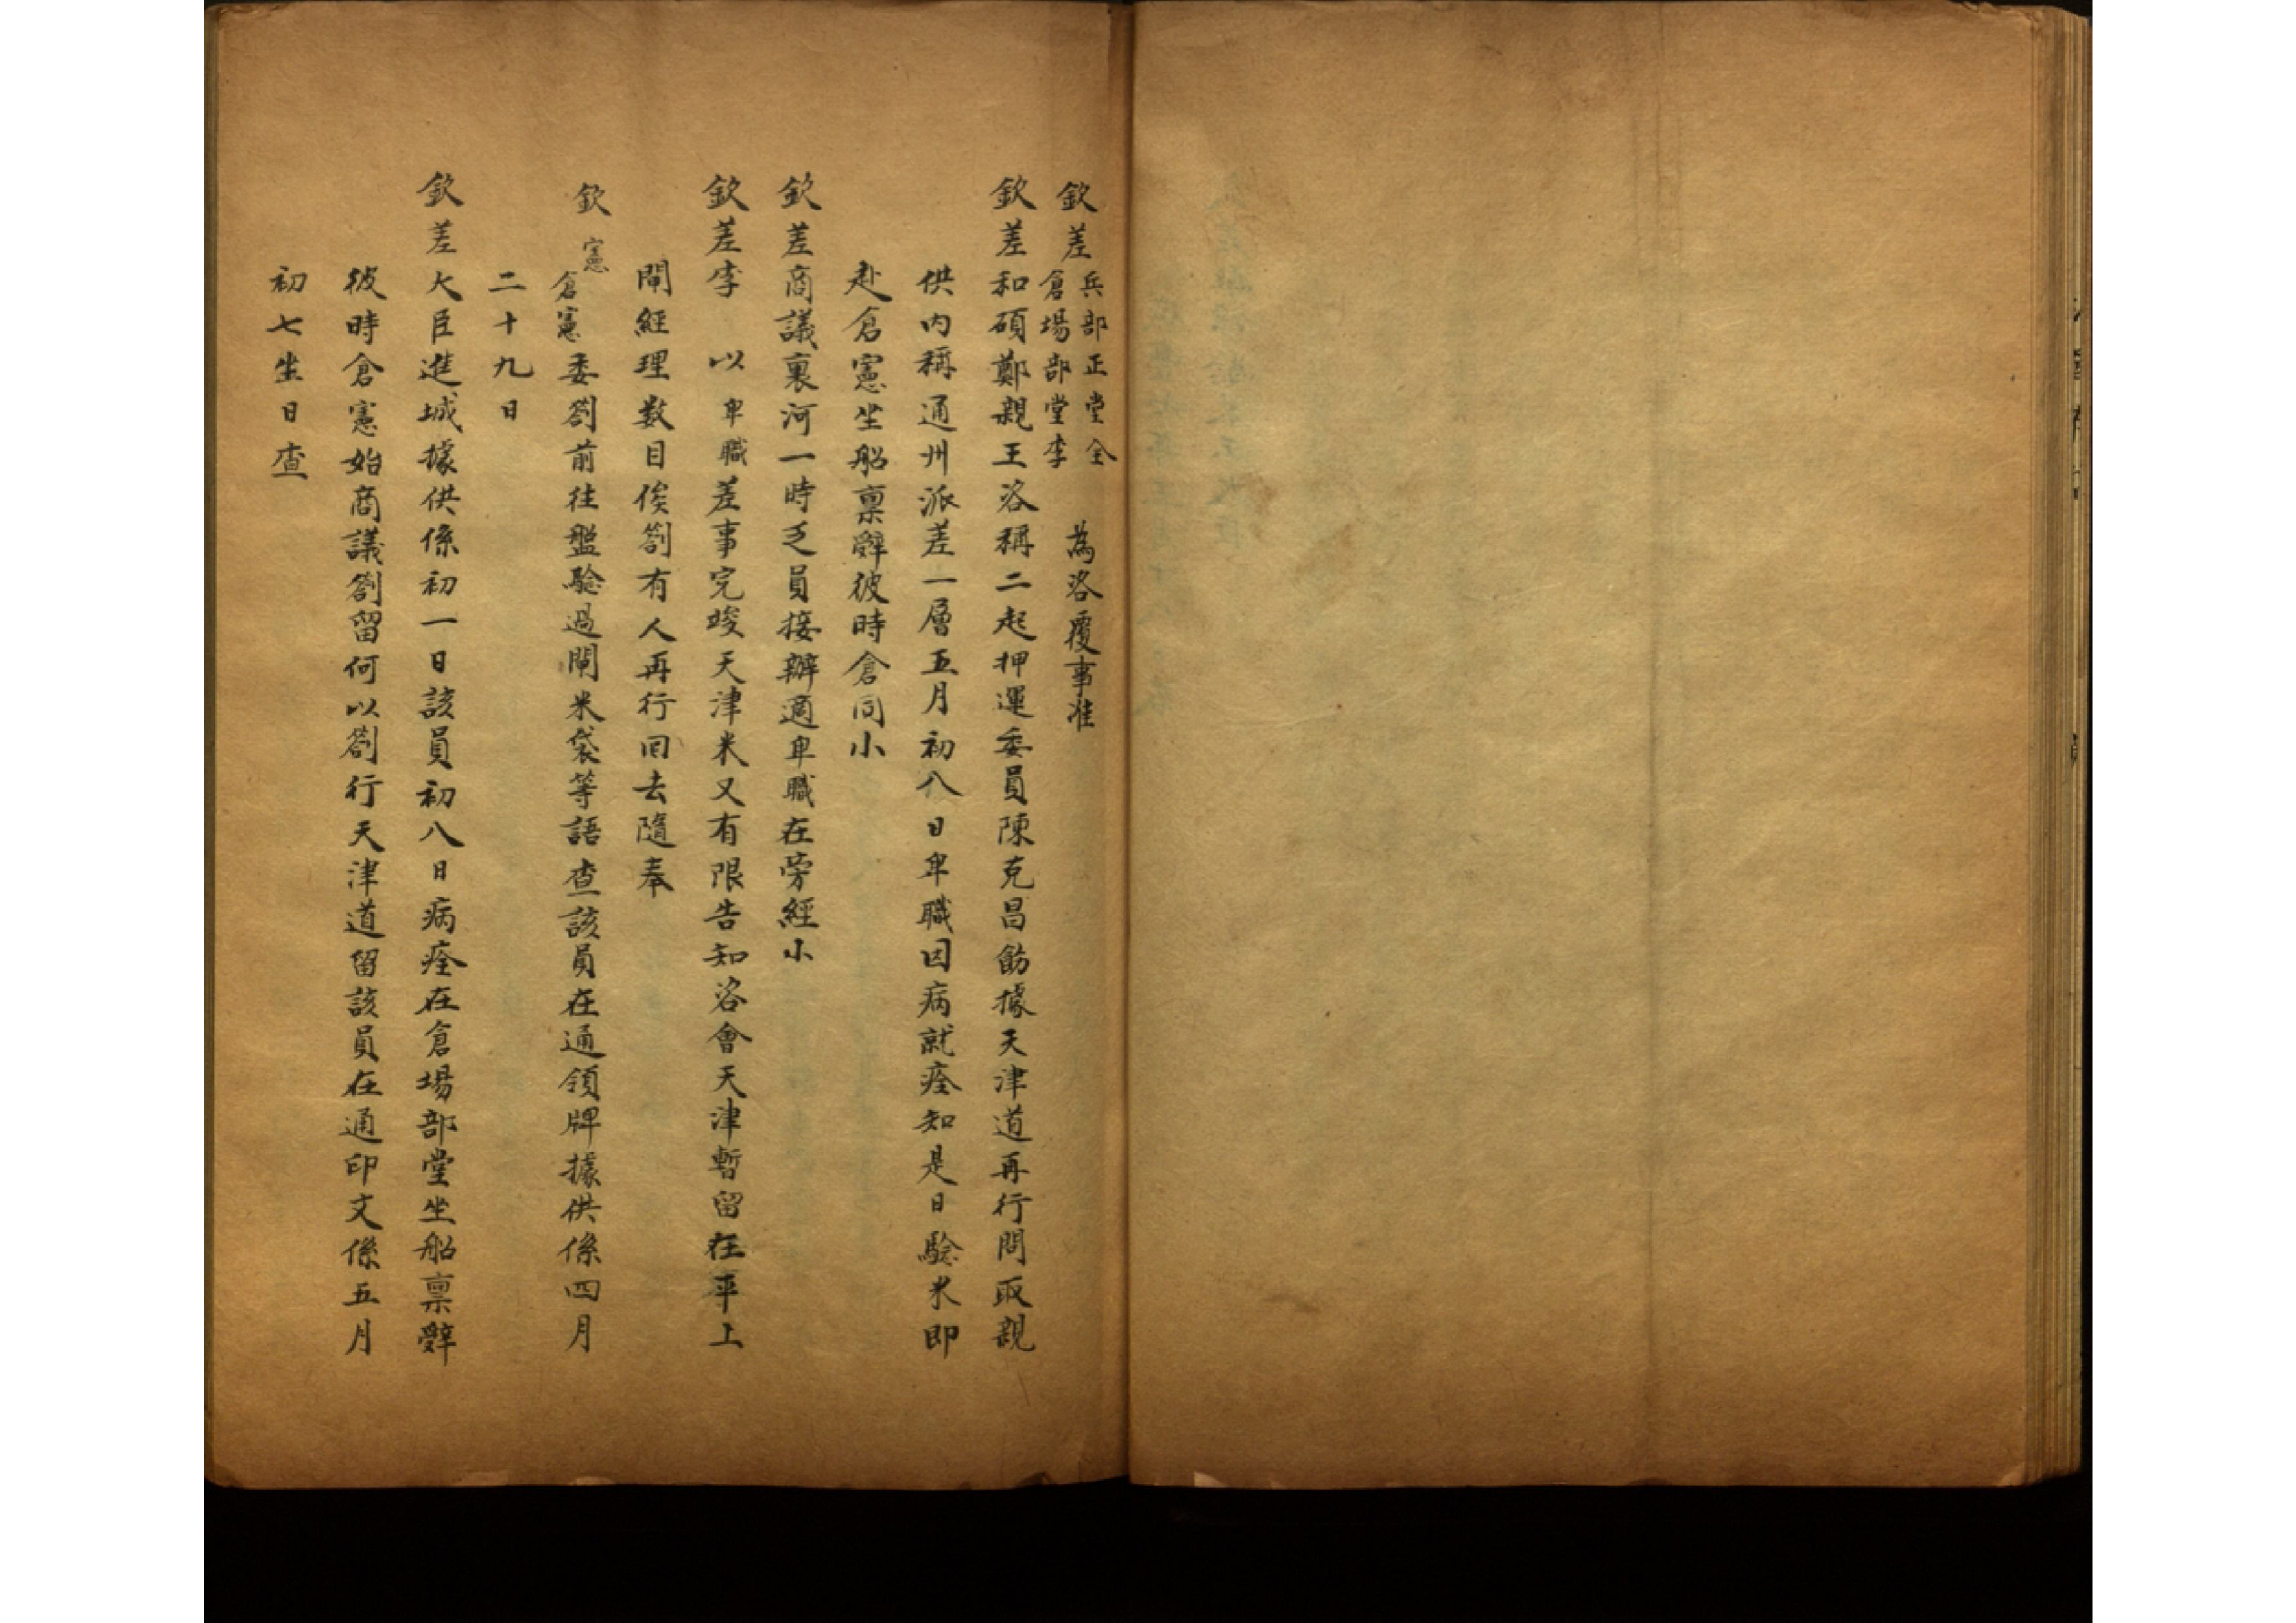 欽差兵部正堂全
倉場部堂李
為咨覆事准
欽差和碩鄭親王咨稱二起押運委員陳克昌飭據天津道再行問取親
供內稱通州派差一層五月初八日卑職因病就痊知是日驗米即
赴倉憲坐船稟辭彼時倉同小
欽差商議裏河一時乏員接辦適卑職在旁經小
欽差李 以卑職差事完竣天津米又有限告知咨會天津暫留在平上
閘經理数目俟劄有人再行回去隨奉
欽憲
倉憲委劄前往盤驗過閘米袋等語查該員在通領牌據供係四月
二十九日
欽差大臣進城據供係初一日該員初八日病痊在倉場部堂坐船稟辭
彼時倉憲始商議劄留何以劄行天津道留該員在通印文係五月
初七坐日查